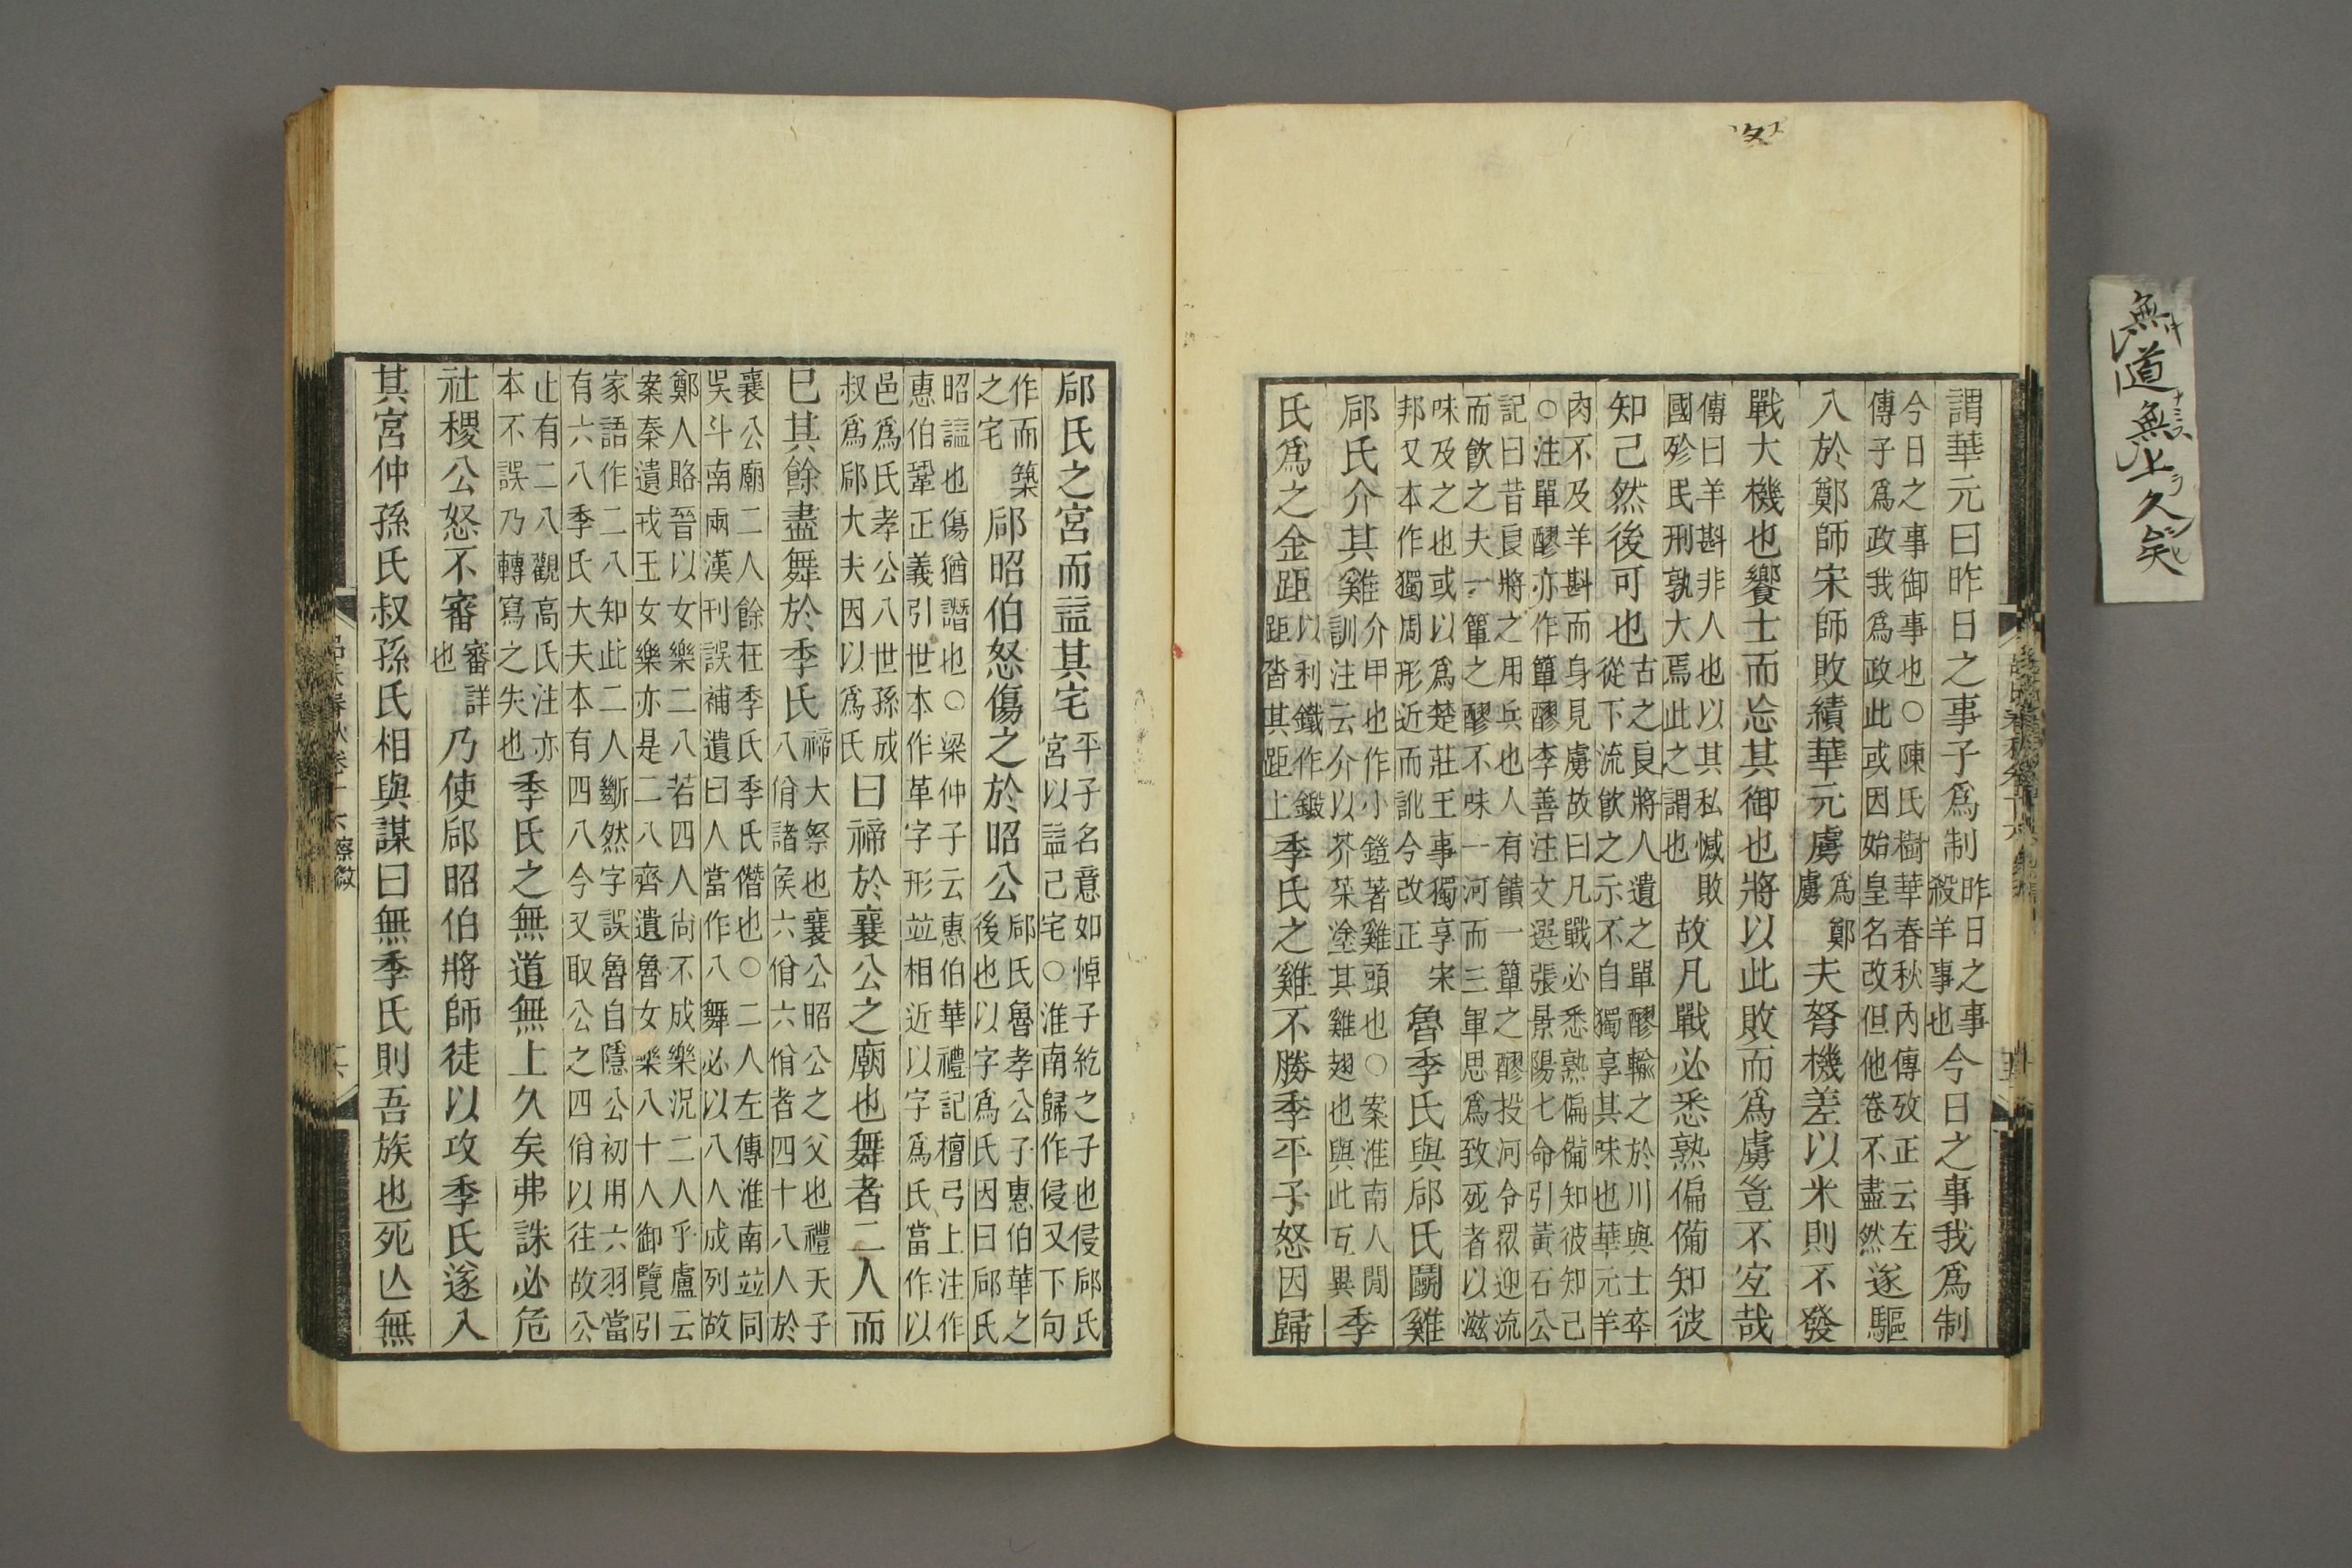 謂華元曰昨日之事子爲制
昨日之事
殺羊事也
今日之事我爲制
今日之事御事也○陳氏樹華春秋内傳攷正云左
傳子爲政我爲政此或因始皇名改但他卷不盡然
遂驅
入於鄭師宋師敗績華元虜
爲鄭
虜
夫弩機差以米則不發
戰大機也饗士而忘其御也將以此敗而爲虜豈不宜哉
傳曰羊斟非人也以其私憾敗
國殄民刑孰大焉此之謂也
故凡戰必悉熟偏備知彼
知己然後可也
古之良將人遺之單醪輸之於川與士卒
從下流飲之示不自獨享其味也華元羊
肉不及羊斟而身見虜故曰凡戰必悉熟偏備知彼知己
○注單醪亦作簞醪李善注文選張景陽七命引黃石公
記曰昔良將之用兵也人有饋一簞之醪投河令眾迎流
而飲之夫一簞之醪不味一河而三軍思爲致死者以滋
味及之也或以爲楚莊王事獨享宋
邦乂本作獨周形近而訛今改正
魯季氏與郈氏鬭雞
郈氏介其雞
介甲也作小鎧著雞頭也○案淮南人閒
訓注云介以芥菜塗其雞翅也與此互異
季
氏爲之金距
以利鐵作鍛
距沓其距上
季氏之雞不勝季平子怒因歸
郈氏之宮而益其宅
平子名意如悼子紇之子也侵郈氏
宮以益己宅○淮南歸作侵又下句
作而築
之宅
郈昭伯怒傷之於昭公
郈氏魯孝公子惠伯華之
後也以字爲氏因曰郈氏
昭諡也傷猶譖也○梁仲子云惠伯華禮記檀弓上注作
惠伯鞏正義引世本作革字形竝相近以字爲氏當作以
邑爲氏孝公八世孫成
叔爲郈大夫因以爲氏
曰禘於襄公之廟也舞者二人而
已其餘盡舞於季氏
禘大祭也襄公昭公之父也禮天子
八佾諸侯六佾六佾者四十八人於
襄公廟二人餘在季氏季氏僭也○二人左傳淮南竝同
吳斗南兩漢刊誤補遺曰人當作八舞必以八人成列故
鄭人賂晉以女樂二八若四人尚不成樂況二人乎盧云
案秦遺戎王女樂亦是二八齊遺魯女樂八十人御覽引
家語作二八知此二人斷然字誤魯自隱公初用六羽當
有六八季氏大夫本有四八今又取公之四佾以往故公
止有二八觀高氏注亦
本不誤乃轉寫之失也
季氏之無道無上久矣弗誅必危
社稷公怒不審
審詳
也
乃使郈昭伯將師徒以攻季氏遂入
其宮仲孫氏叔孫氏相與謀曰無季氏則吾族也死亡無
呂氏春秋卷十六 察微
無道無上久矣